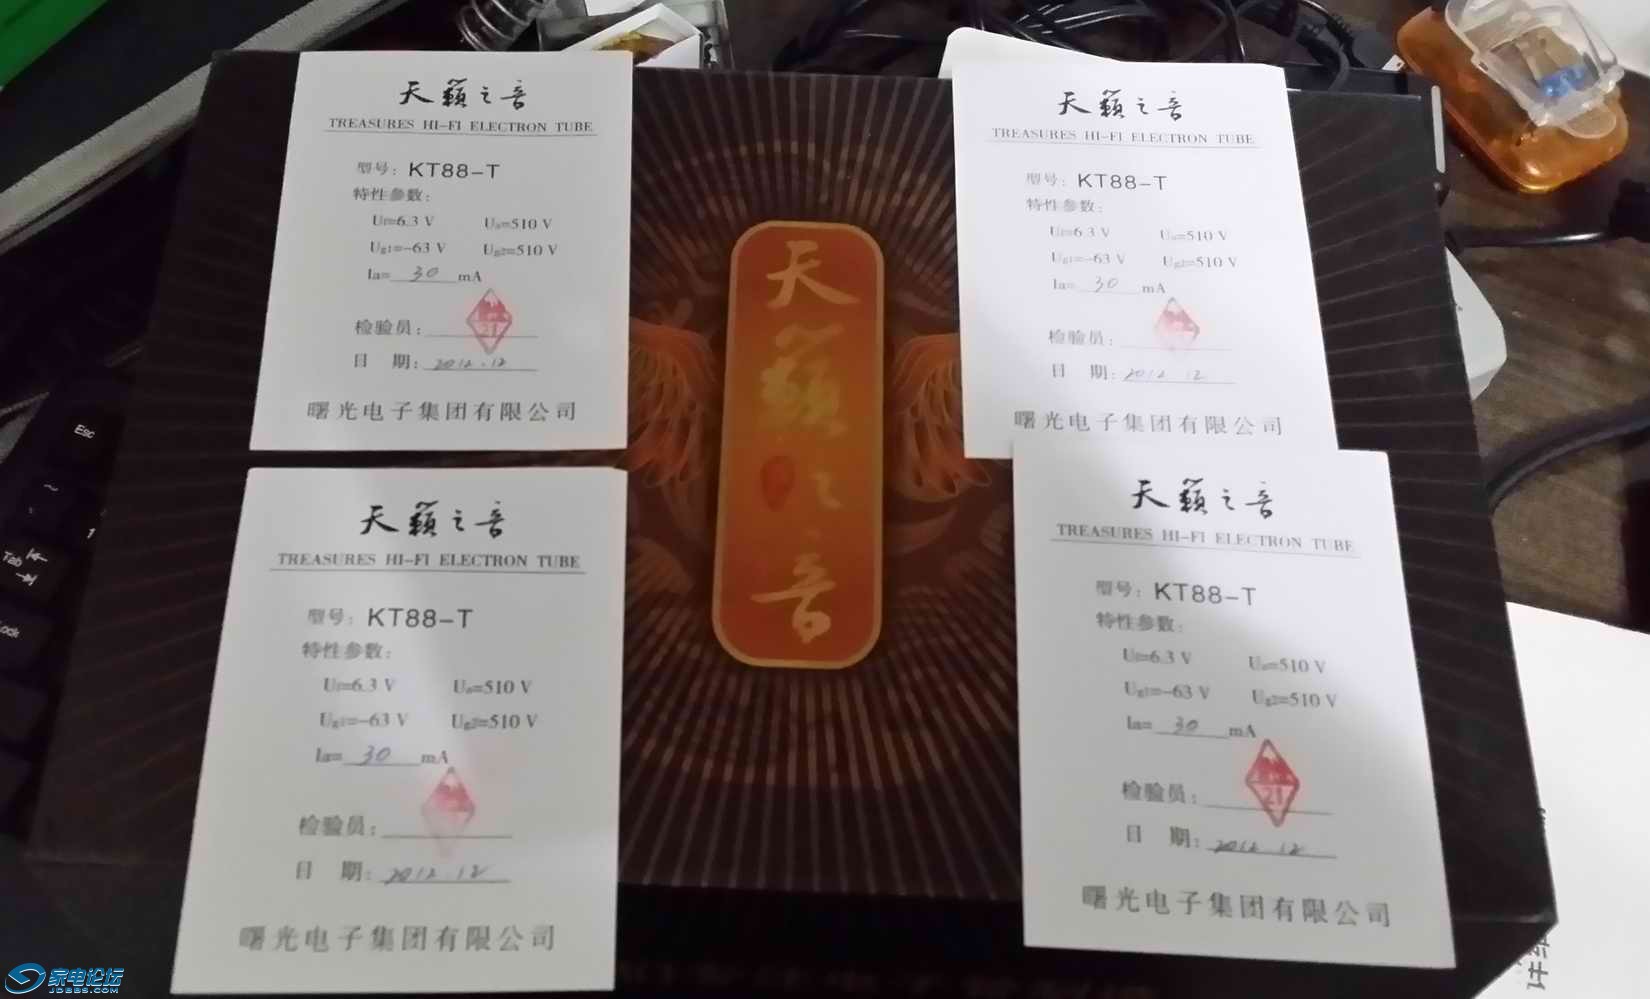 天籟之音
TREASURES HI-FI ELECTRON TUBE
型号: KT88-T
特性参数:
Uf=6.3 V Ua=510 V
Ug1=-63 V Ug2=510 V
Ia= 30 mA
21
检验员:
日 期: 2012.12
曙光电子集团有限公司
天籟之音
TREASURES HI-FI ELECTRON TUBE
型号: KT88-T
特性参数:
Uf=6.3 V Ua=510 V
Ug1=-63 V Ug2=510 V
Ia= 30 mA
检验员:
日 期: 2012 12
曙光电子集团有限公司
天籟之音
天籟之音
TREASURES HI-FI ELECTRON TUBE
型号: KT88-T
特性参数:
Uf=6.3 V Ua=510 V
Ug1=-63 V Ug2=510 V
Ia= 30 mA
检验员:
日 期: 2012.12
曙光电子集团有限公司
天籟之音
TREASURES HI-FI ELECTRON TUBE
型号: KT88-T
特性参数:
Uf=6.3 V Ua=510 V
Ug1=-63 V Ug2=510 V
Ia= 30 mA
21
检验员:
日 期: 2012.12
曙光电子集团有限公司
Esc
~
1
Tab
家电论坛
JDBBS.COM